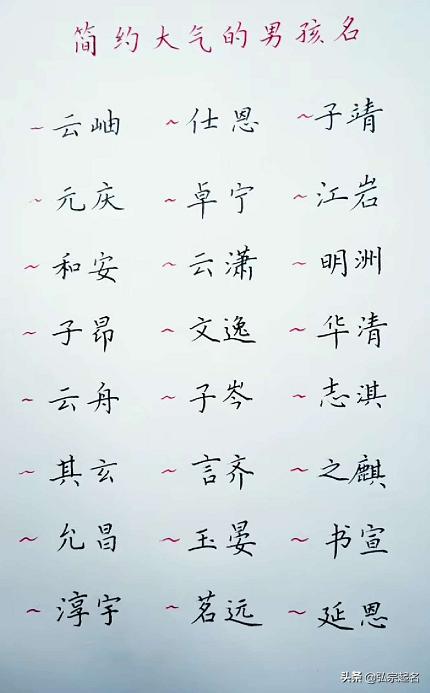 简约大气的男孩名
~云岫 ~仕恩 ~子靖
~元庆 ~卓宁 ~江岩
~和安 ~云潇 ~明洲
~子昂 ~文逸 ~华清
~云舟 ~子岑 ~志淇
~其玄 ~言齐 ~之麒
~允昌 ~玉晏 ~书宣
~淳宇 ~茗远 ~延恩
头条 @弘宗起名